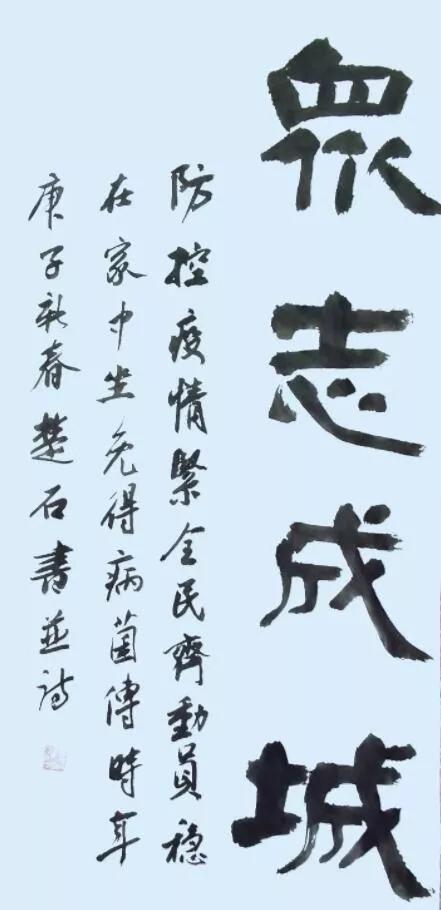 眾志成城
防控疫情緊全民齊動員穩
在家中坐免得病菌傳時年
庚子新春楚石書並詩